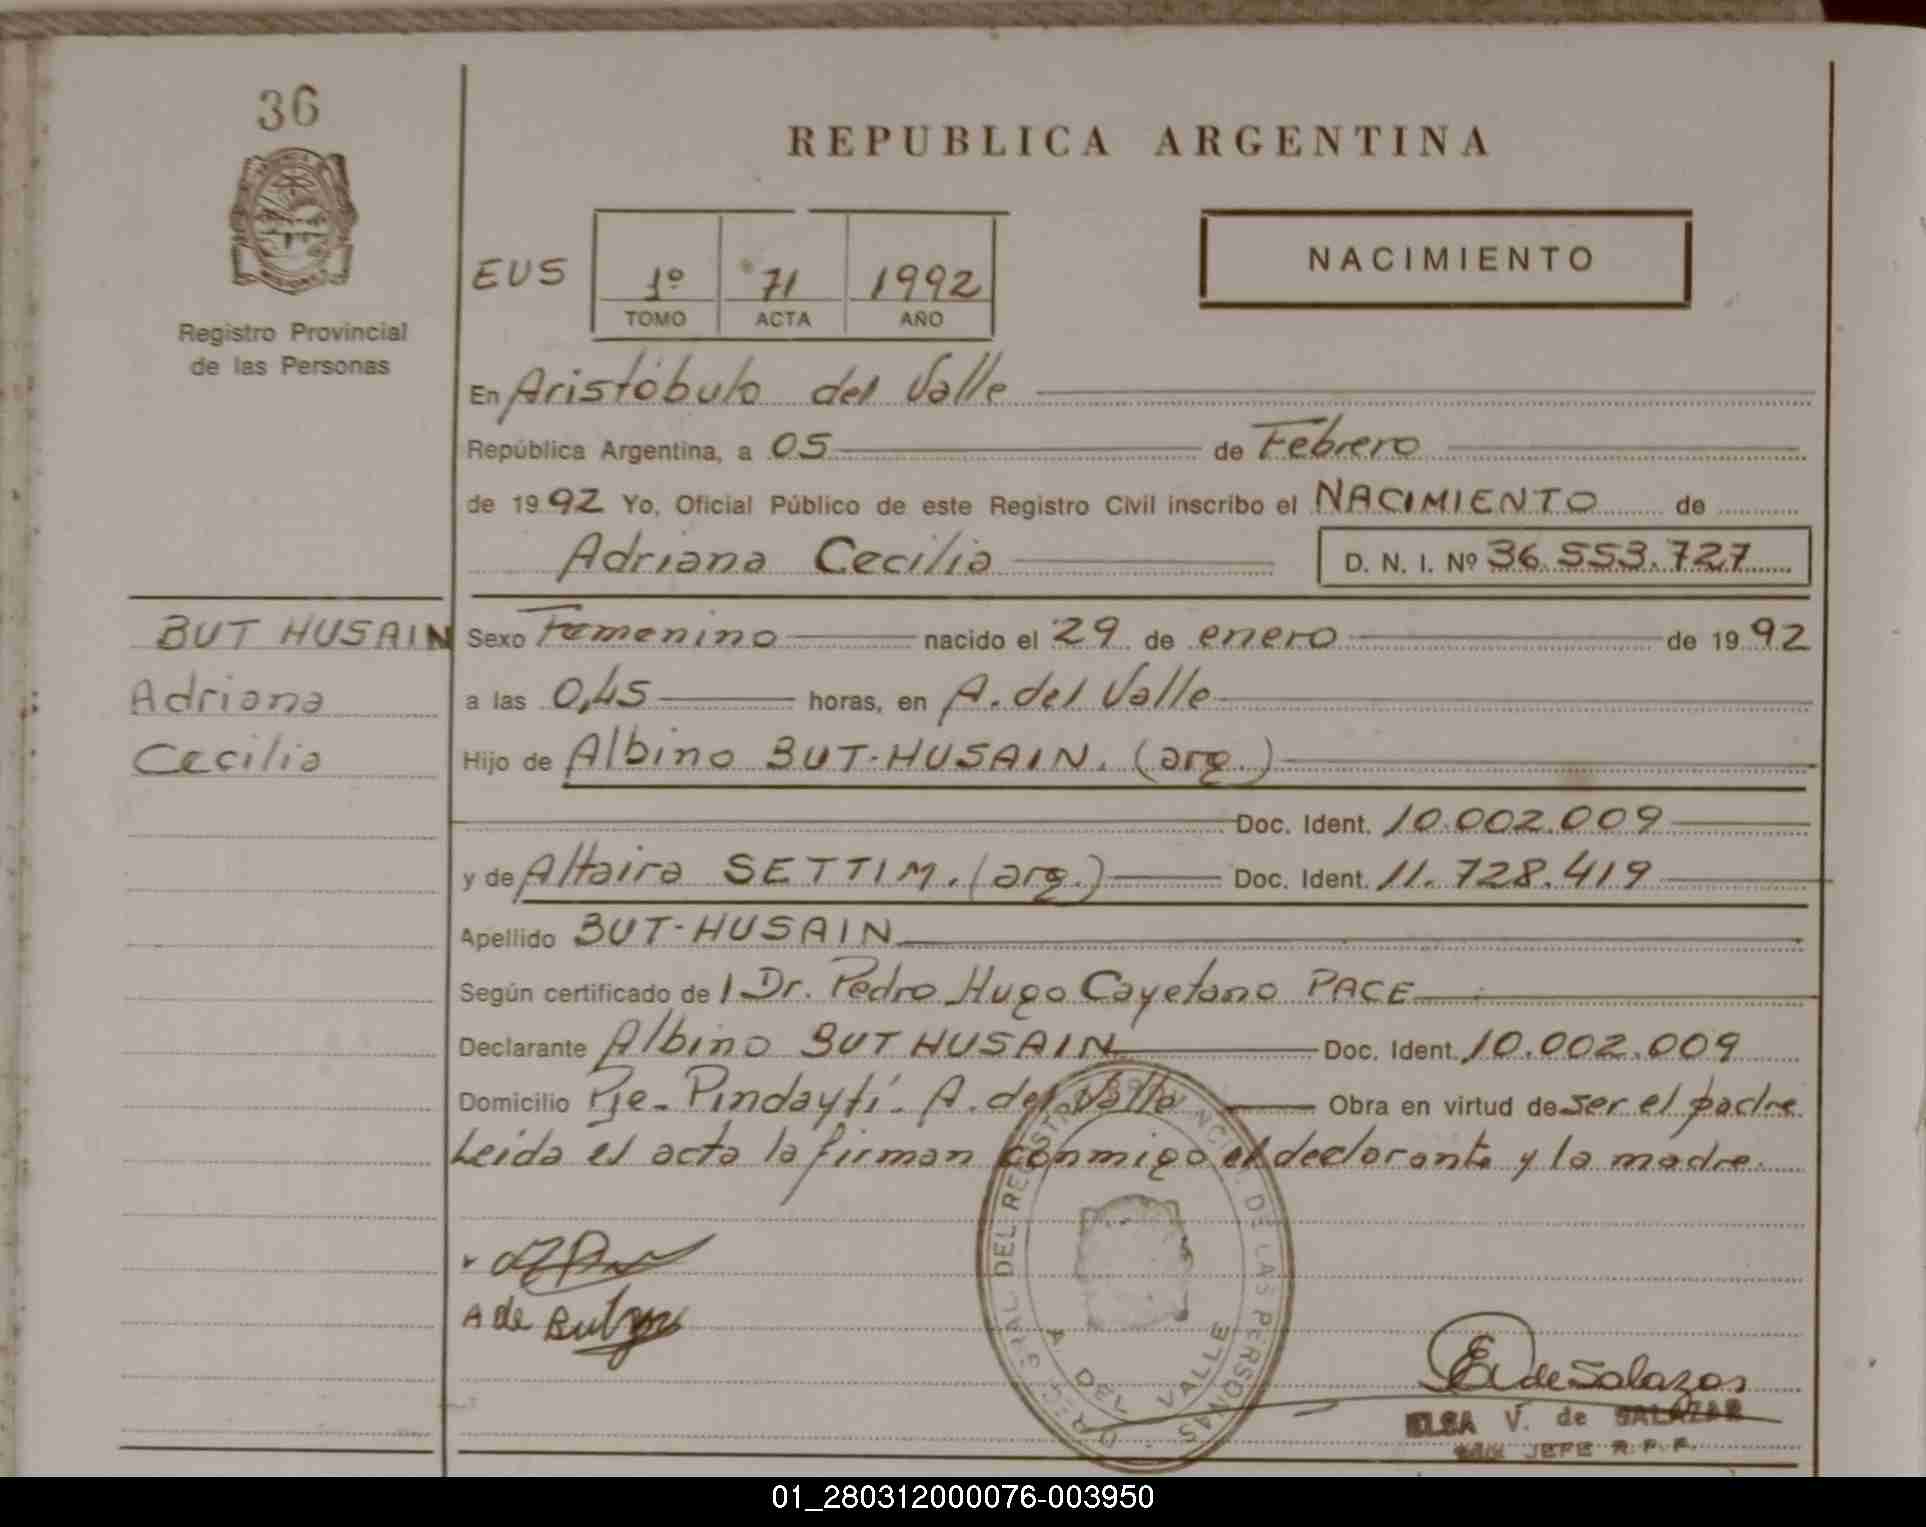 36
REPUBLICA ARGENTINA
NACIMIENTO
EUS
1º 71 1992
TOMO ACTA AÑO
Registro Provincial
de las Personas
En Aristóbulo del Valle
República Argentina, a 05 de Febrero
de 1992 Yo, Oficial Público de este Registro Civil inscribo el NACIMIENTO de
Adriana Cecilia D. N. I. Nº 36.553.727
BUT HUSAIN
Adriana
Cecilia
Sexo Femenino nacido el 29 de enero de 1992
a las 0,45 horas, en A. del Valle
Hijo de Albino BUT-HUSAIN. (arg.)
Doc. Ident. 10.002.009
y de Altaira SETTIM. (arg.) Doc. Ident. 11.728.419
Apellido BUT-HUSAIN
Según certificado de l Dr. Pedro Hugo Cayetano PACE
Declarante Albino BUT HUSAIN Doc. Ident. 10.002.009
Domicilio Pje. Pindaytí. A. del Valle Obra en virtud de ser el padre.
Leida el acta la firman conmigo el declarante y la madre.
A de But
DEL REGISTRO PROVINCIAL DE LAS PERSONAS
A DEL VALLE
E de Salazar
ELSA V. de SALAZAR
JEFE R.P.P.
01_280312000076-003950